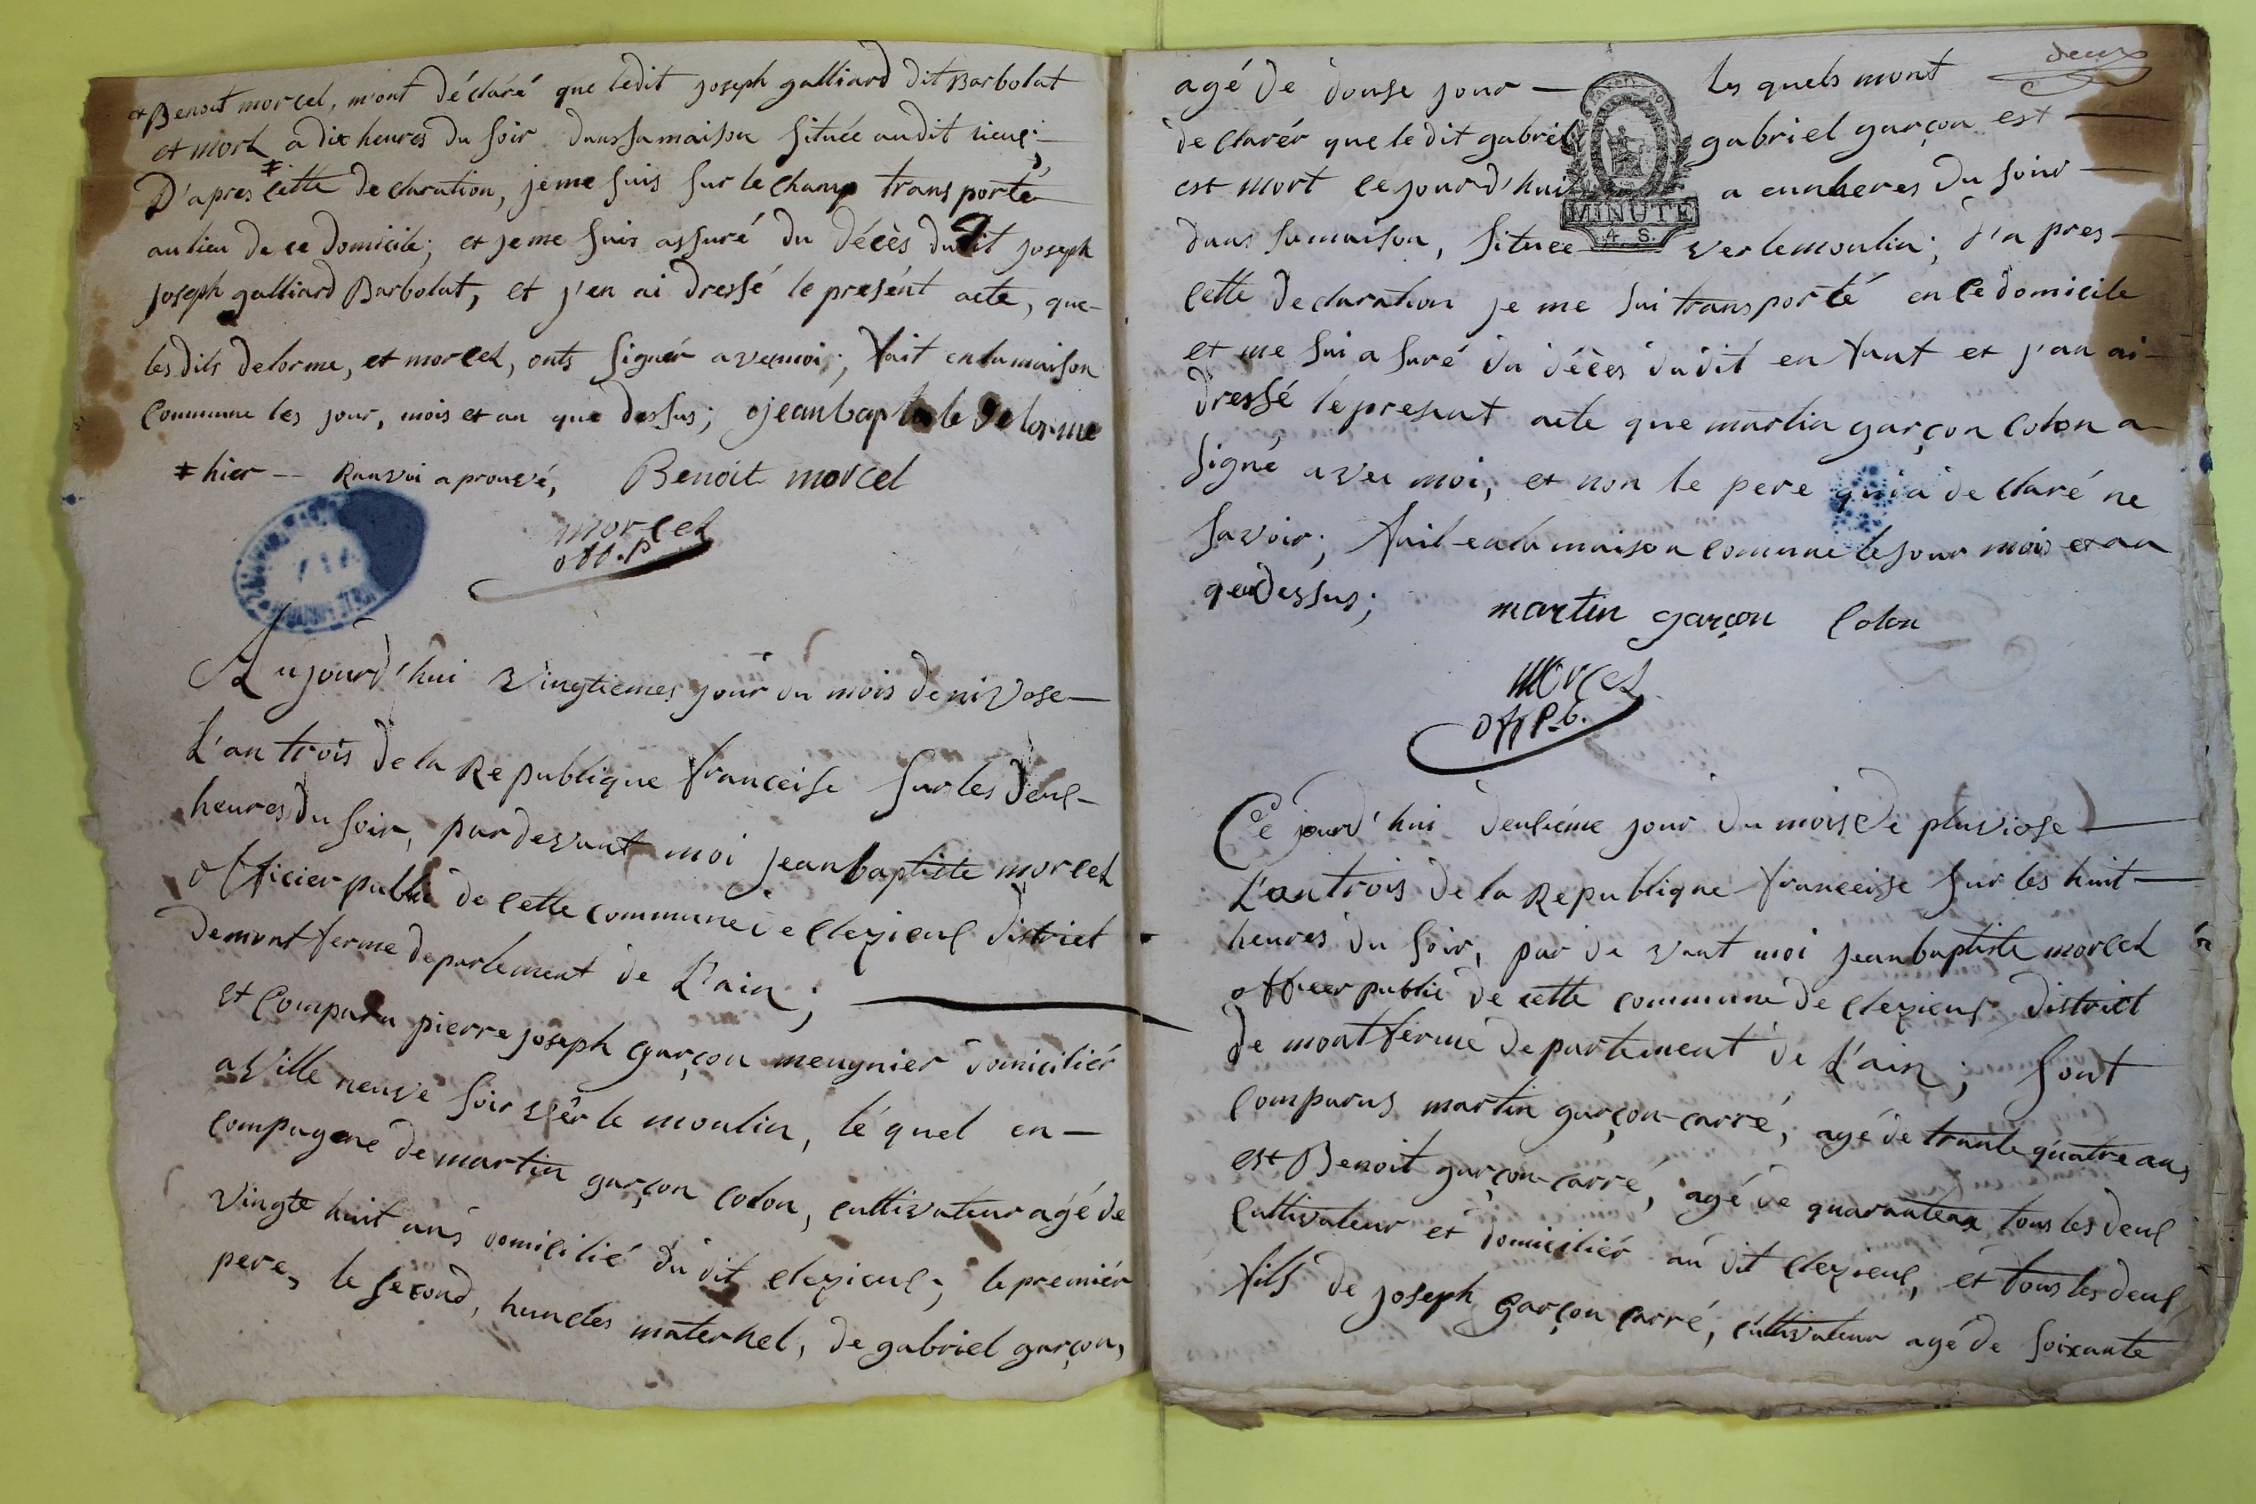 et Benoit morcel, m'ont déclaré que ledit joseph galliard dit Barbolat
et mort * a dix heures du soir dans sa maison située audit lieus;
D'apres cette declaration, je me suis sur le champ transporté
au lieu de ce domicile; et je me suis assuré du décès dudit joseph
joseph galliard Barbolat, et j'en ai dressé le présént acte, que
les dits delorme, et morcel, onts signér avec moi; fait en la maison
commune les jour, mois et an que dessus; jean baptiste Delorme
* hier — Ranvoi aprouvé, Benoit morcel
morcel
off. p
Aujourd'hui vingtiemes jour du mois de nivose
L'an trois de la Republique franceise sur les deus
heures du soir, par devant moi jean baptiste morcel
officier public de cette commune de cleyieus district
de montferme departement de L'ain;
et Comparu pierre joseph garçon meugnier domiciliér
a ville neuve soir vér le moulin, léquel en
compagene de martin garçon colon, cultivateur agé de
vingte huit ans domicilié du dit cleyieus; le premiér
pere, le second, huncles maternel, de gabriel garçon,
deux
agé de douse jour — les quels mont
declarér que le dit gabriel gabriel garçon est
est mort ce jourd'hui a eunheres du soir
dans sa maison, située ver le moulin; d'apres
cette declaration je me sui transporté en ce domicile
et me sui a suré du décès dudit enfant et j'an ai
dressé le present acte que martin garçon colon a
signé avec moi, et non le pere qui a declaré ne
savoir; fait en la maison comune le jour mois et an
que dessus; martin garçon colon
morcel
off p.b.
MINUTE
4 S.
Ce jourd'hui deusiéme jour du mois de pluviose
L'an trois de la Republique franceise sur les huit
heures du soir, par devant moi jean baptiste morcel
officer public de cette commune de cleyieus district
de montferme departement de L'ain; sont
comparus martin garçon-carré, agé de trante quatre ans
est Benoit garçon-carré, agé de quarantean tous les deus
cultivateur et domiciliér au dit cleyieus, et tous les deus
fils de joseph garçon carré, cultivateur agé de soixante